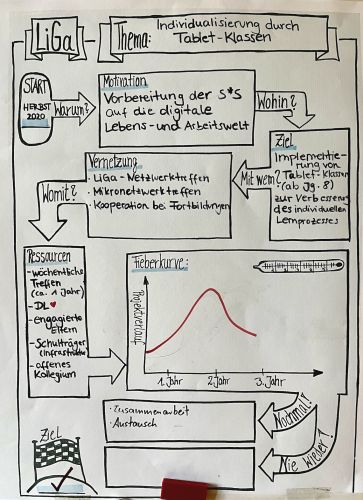 LiGa
Thema:
Individualisierung durch
Tablet-Klassen
START
HERBST
2020
Warum?
Motivation
Vorbereitung der S*S
auf die digitale
Lebens- und Arbeitswelt
Wohin?
Ziel
Implementie-
rung von
Tablet-Klassen
(ab Jg. 8)
zur Verbesserung
des individuellen
Lernprozesses
Mit wem?
Vernetzung
- LiGa - Netzwerktreffen
• Mikronetzwerktreffen
• Kooperation bei Fortbildungen
Womit?
Ressourcen
- wöchentliche
Treffen
(ca. 1 Jahr)
- DL
- engagierte
Eltern
- Schulträger
(Infrastruktur)
- offenes
Kollegium
Fieberkurve:
Projektverlauf
1. Jahr
2. Jahr
3. Jahr
• Zusammenarbeit
• Austausch
Nochmal!
Nie wieder!
Ziel